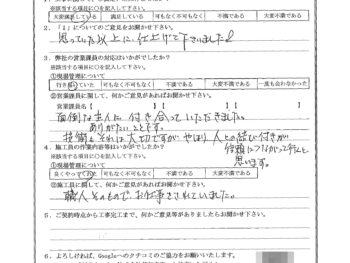 ※該当する項目に○を記入して下さい。
大変満足している 満足している 可もなく不可もなく 不満である 大変不満である
2．「1」についてのご意見をお聞かせ下さい。
思っていた以上に仕上げて下さいました
3．弊社の営業課員の対応はいかがでしたか？
※該当する項目に○を記入して下さい。
①現場管理について
行き届いていた 可もなく不可もなく 不満である 大変不満である 一度も会わなかった
②営業課員に関して、何かご意見がありましたらお聞かせ下さい。
営業課員名【 】【 】
面倒な主人に付き合っていただきました。
ありがたいことです。
技術もそれは大切ですが、やはり人との結び付きが
信頼につながって行くんと
思います。
4．施工員の作業内容等はいかがでしたか？
※該当する項目に○を記入して下さい。
①現場管理について
良くやっていた 可もなく不可もなく 不満である 大変不満である
②施工員に関して、何かご意見がありましたらお聞かせ下さい。
職人そのものでお仕事をされていました。
5．ご契約時点から工事完工まで、何かご意見等がありましたらお聞かせ下さい。
6．よろしければ、Googleへのクチコミのご協力をお願いいたします。